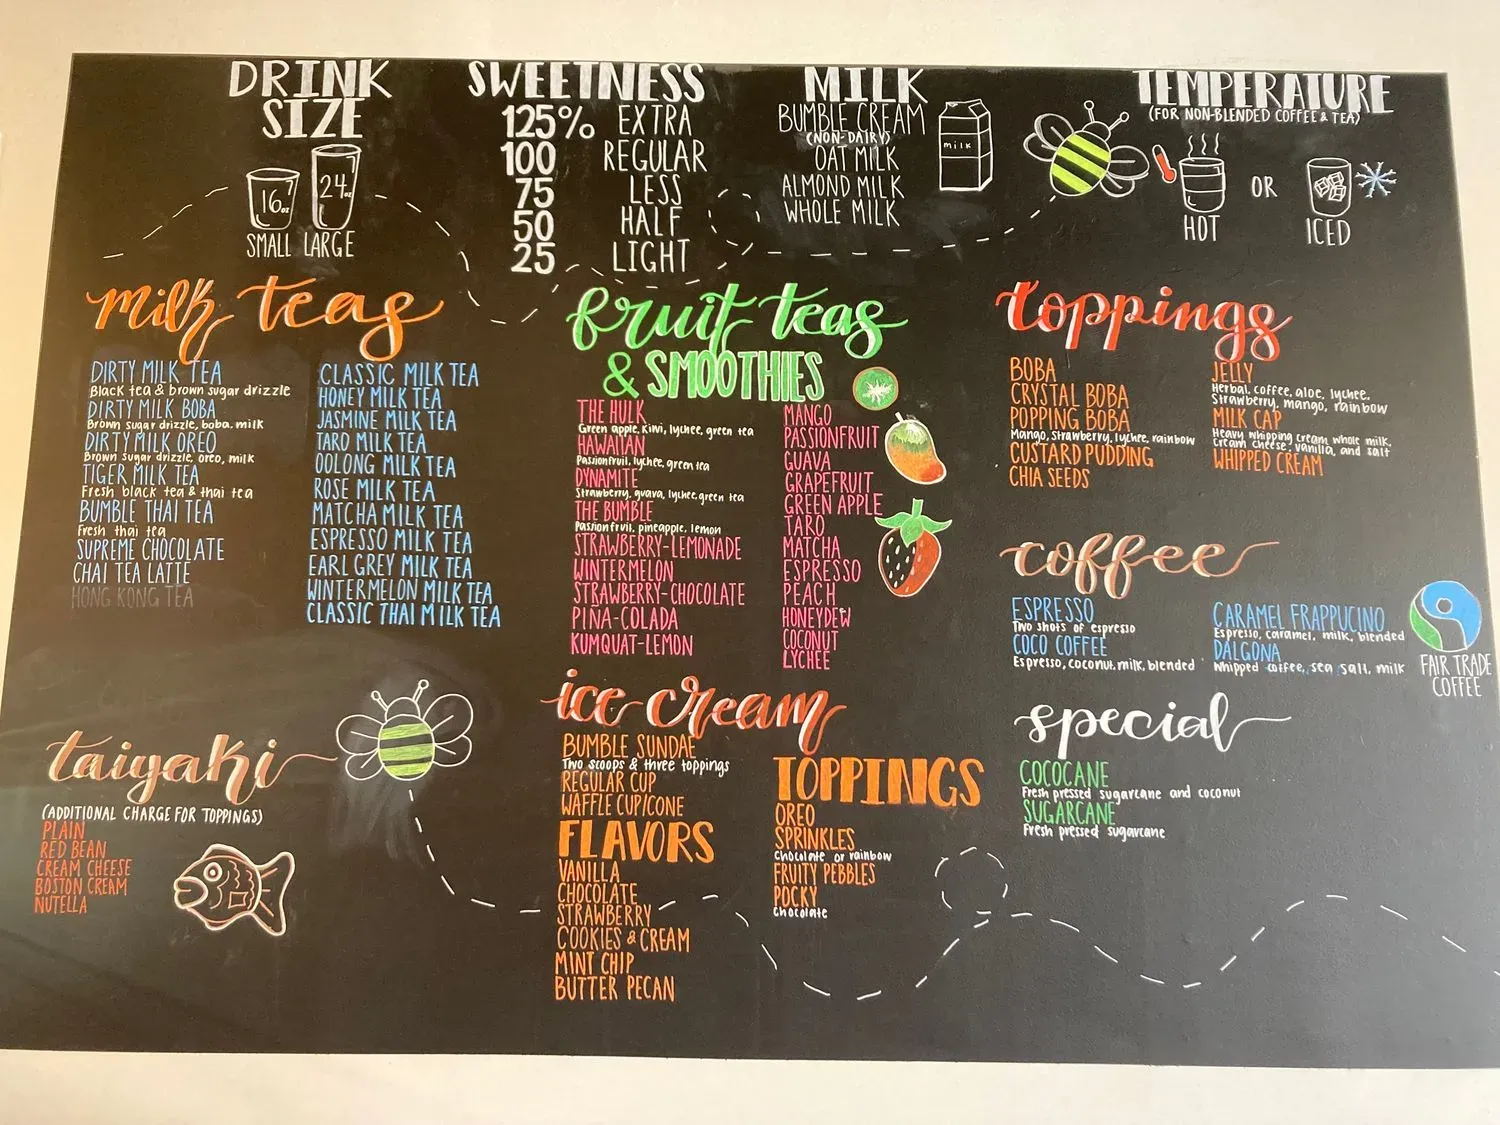 DRINK
SIZE
16oz
24oz
SMALL LARGE
SWEETNESS
125% EXTRA
100 REGULAR
75 LESS
50 HALF
25 LIGHT
MILK
BUMBLE CREAM
(NON-DAIRY)
OAT MILK
ALMOND MILK
WHOLE MILK
milk
TEMPERATURE
(FOR NON-BLENDED COFFEE & TEA)
HOT
OR
ICED
milk teas
DIRTY MILK TEA
Black tea & brown sugar drizzle
DIRTY MILK BOBA
Brown sugar drizzle, boba, milk
DIRTY MILK OREO
Brown sugar drizzle, oreo, milk
TIGER MILK TEA
Fresh black tea & thai tea
BUMBLE THAI TEA
Fresh thai tea
SUPREME CHOCOLATE
CHAI TEA LATTE
HONG KONG TEA
CLASSIC MILK TEA
HONEY MILK TEA
JASMINE MILK TEA
TARO MILK TEA
OOLONG MILK TEA
ROSE MILK TEA
MATCHA MILK TEA
ESPRESSO MILK TEA
EARL GREY MILK TEA
WINTERMELON MILK TEA
CLASSIC THAI MILK TEA
fruit teas
& SMOOTHIES
THE HULK
Green apple, kiwi, lychee, green tea
HAWAIIAN
Passionfruit, lychee, green tea
DYNAMITE
Strawberry, guava, lychee, green tea
THE BUMBLE
Passionfruit, pineapple, lemon
STRAWBERRY-LEMONADE
WINTERMELON
STRAWBERRY-CHOCOLATE
PIÑA-COLADA
KUMQUAT-LEMON
MANGO
PASSIONFRUIT
GUAVA
GRAPEFRUIT
GREEN APPLE
TARO
MATCHA
ESPRESSO
PEACH
HONEYDEW
COCONUT
LYCHEE
toppings
BOBA
CRYSTAL BOBA
POPPING BOBA
Mango, Strawberry, lychee, rainbow
CUSTARD PUDDING
CHIA SEEDS
JELLY
Herbal, coffee, aloe, lychee,
Strawberry, mango, rainbow
MILK CAP
Heavy whipping cream, whole milk,
cream cheese, vanilla, and salt
WHIPPED CREAM
coffee
ESPRESSO
Two shots of espresso
COCO COFFEE
Espresso, coconut, milk, blended
CARAMEL FRAPPUCINO
Espresso, caramel, milk, blended
DALGONA
Whipped coffee, sea salt, milk
FAIR TRADE
COFFEE
special
COCOCANE
Fresh pressed sugarcane and coconut
SUGARCANE
Fresh pressed sugarcane
taiyaki
(ADDITIONAL CHARGE FOR TOPPINGS)
PLAIN
RED BEAN
CREAM CHEESE
BOSTON CREAM
NUTELLA
ice cream
BUMBLE SUNDAE
Two scoops & three toppings
REGULAR CUP
WAFFLE CUP/CONE
FLAVORS
VANILLA
CHOCOLATE
STRAWBERRY
COOKIES & CREAM
MINT CHIP
BUTTER PECAN
TOPPINGS
OREO
SPRINKLES
Chocolate or rainbow
FRUITY PEBBLES
POCKY
Chocolate